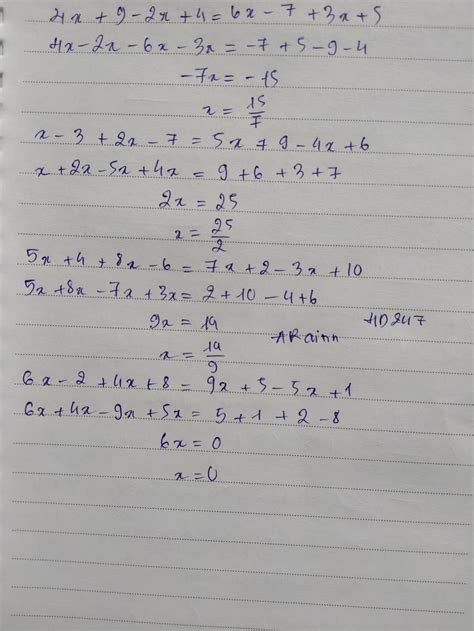 4x + 9 - 2x + 4 = 6x - 7 + 3x + 5
4x - 2x - 6x - 3x = -7 + 5 - 9 - 4
-7x = -15
x = 15/7
x - 3 + 2x - 7 = 5x + 9 - 4x + 6
x + 2x - 5x + 4x = 9 + 6 + 3 + 7
2x = 25
x = 25/2
5x + 4 + 8x - 6 = 7x + 2 - 3x + 10
5x + 8x - 7x + 3x = 2 + 10 - 4 + 6
9x = 14
HD247
ARainn
x = 14/9
6x - 2 + 4x + 8 = 9x + 5 - 5x + 1
6x + 4x - 9x + 5x = 5 + 1 + 2 - 8
6x = 0
x = 0